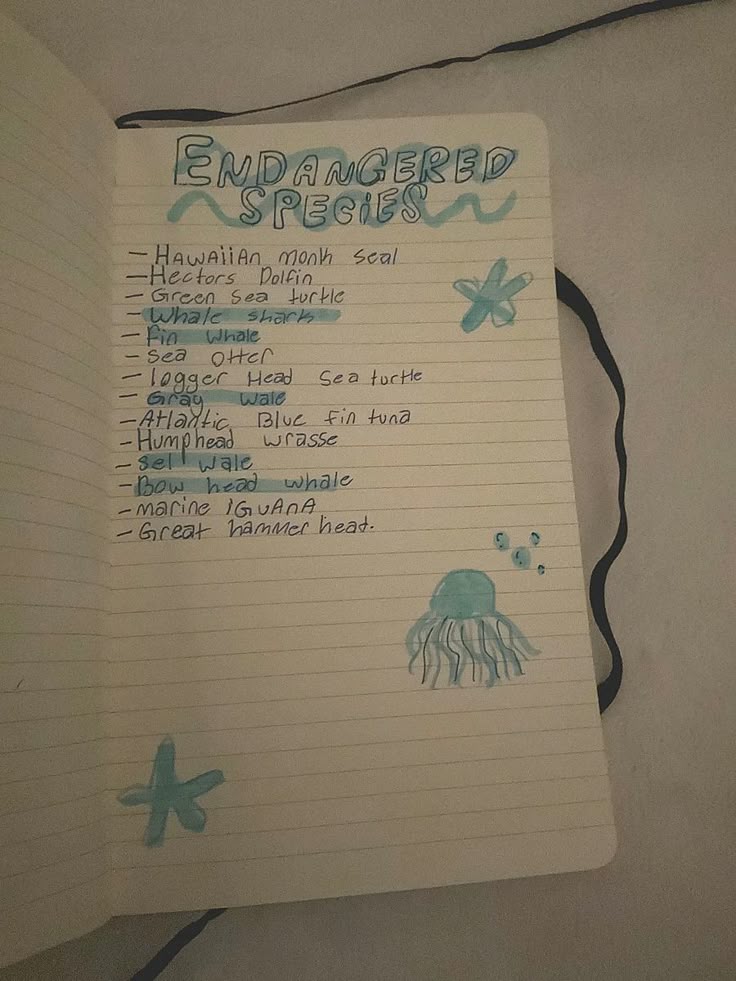 ENDANGERED
SPECiES
- HAWAiiAn monk seal
- Hectors Dolfin
- Green sea turtle
- Whale shark
- Fin whale
- sea otter
- logger Head Sea turtle
- Gray wale
- Atlantic Blue fin tuna
- Humphead wrasse
- Sei wale
- Bow head whale
- marine iGuAnA
- Great hammer head.